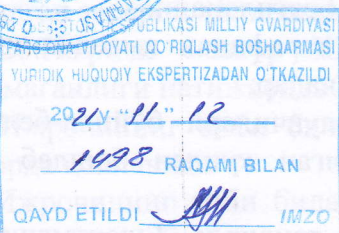 PUBLIKASI MILLIY GVARDIYASI
VILOYATI QO'RIQLASH BOSHQARMASI
YURIDIK HUQUQIY EKSPERTIZADAN O'TKAZILDI
2021 y. "11" 12
1498 RAQAMI BILAN
QAYD ETILDI IMZO